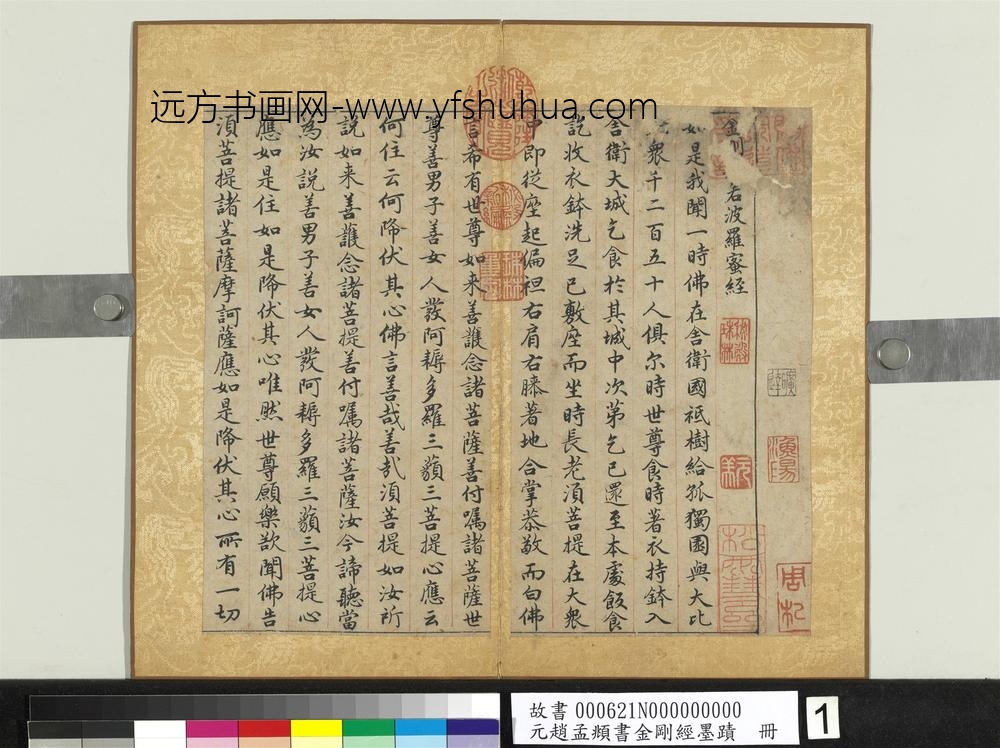 远方书画网-www.yfshuhua.com
金剛般若波羅蜜經
如是我聞一時佛在舍衛國祇樹給孤獨園與大比
丘衆千二百五十人俱尒時世尊食時著衣持鉢入
舍衛大城乞食於其城中次第乞已還至本處飯食
訖收衣鉢洗足已敷座而坐時長老湏菩提在大衆
中即從座起偏袒右肩右膝著地合掌恭敬而白佛
言希有世尊如来善護念諸菩薩善付囑諸菩薩世
尊善男子善女人發阿耨多羅三藐三菩提心應云
何住云何降伏其心佛言善哉善哉湏菩提如汝所
說如来善護念諸菩提善付囑諸菩薩汝今諦聽當
為汝説善男子善女人發阿耨多羅三藐三菩提心
應如是住如是降伏其心唯然世尊願樂欲聞佛告
湏菩提諸菩薩摩訶薩應如是降伏其心所有一切
故書 000621N000000000
元趙孟頫書金剛經墨蹟 冊
1